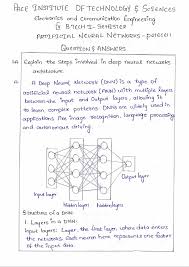 PACE INSTITUTE OF TECHNOLOGY & SCIENCES
Electronics and Communication Engineering
B.TECH I-SEMESTER
ARTIFICIAL NEURAL NETWORKS -
QUESTION & ANSWERS
Explain the steps involved in deep neural networks
architecture.
A Deep Neural Network (DNN) is a type of
artificial neural network (ANN) with multiple layers
between the input and output layers, allowing it
to learn complex patterns. DNNs are widely used in
applications like image recognition, language processing
and autonomous driving.
Input layer
Output layer
Hidden layer
Hidden layer
Structure of a DNN:
1. Layers in a DNN:
Input layer: The first layer, where data enters
the network. Each neuron here represents one feature
of the input data.